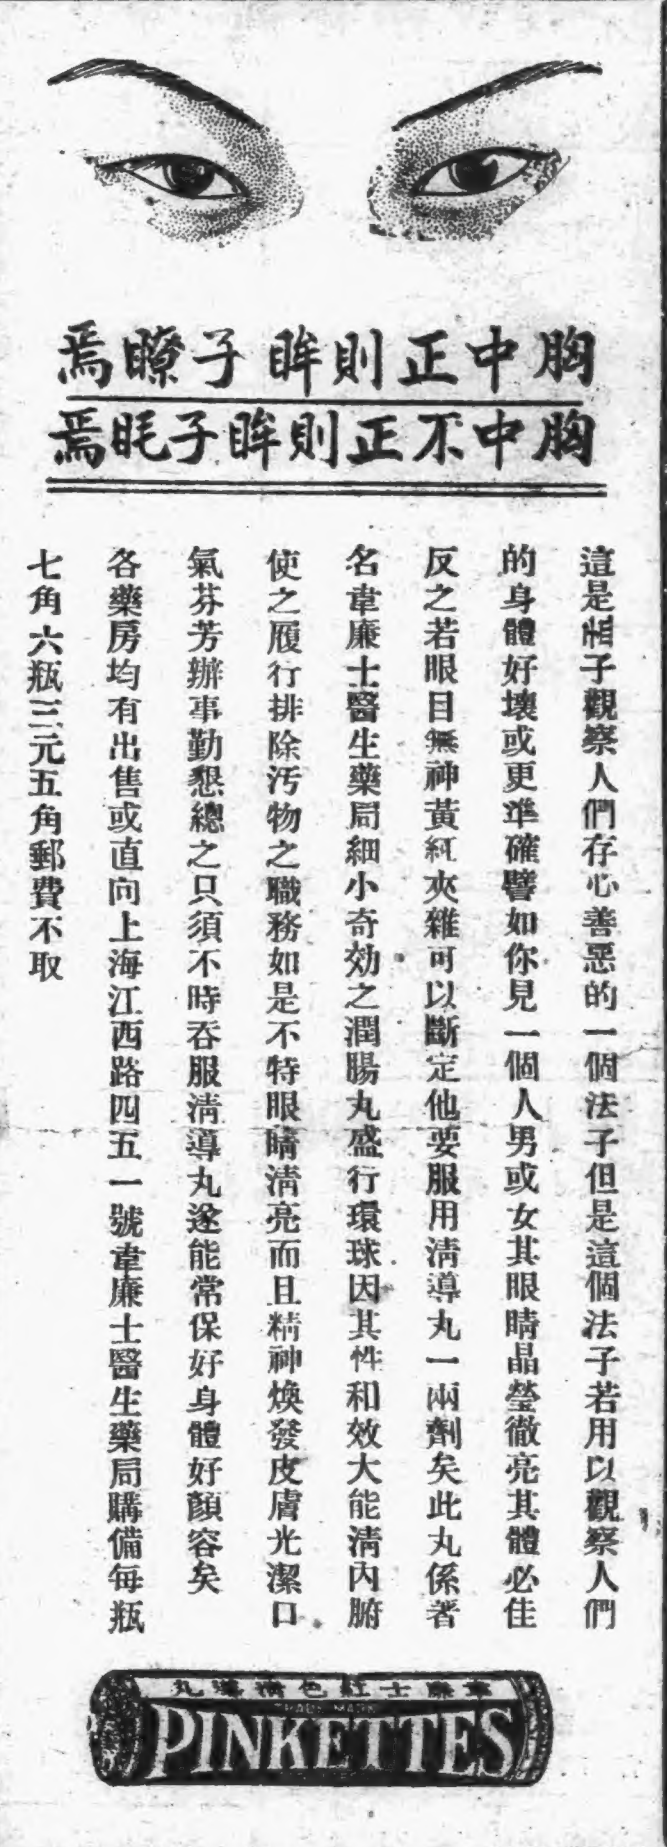 胸中正則眸子瞭焉
胸中不正則眸子眊焉
這是相子觀察人們存心善惡的一個法子但是這個法子若用以觀察人們
的身體好壞或更準確譬如你見一個人男或女其眼睛晶瑩徹亮其體必佳
反之若眼目無神黃紅夾雜可以斷定他要服用清導丸一兩劑矣此丸係著
名韋廉士醫生藥局細小奇効之潤腸丸盛行環球因其性和效大能清內腑
使之履行排除汚物之職務如是不特眼睛清亮而且精神煥發皮膚光潔口
氣芬芳辦事勤懇總之只須不時吞服清導丸遂能常保好身體好顏容矣
各藥房均有出售或直向上海江西路四五一號韋廉士醫生藥局購備每瓶
七角六瓶三元五角郵費不取
韋廉士紅色清導丸
TRADE MARK
PINKETTES